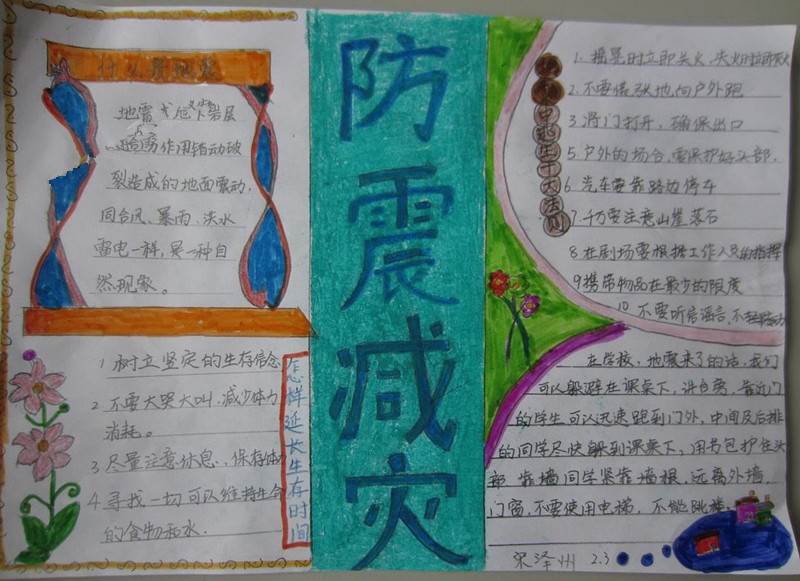 什么是地震
地震是地下岩层
作用错动破
裂造成的地面震动,
同台风、暴雨、洪水
雷电一样,是一种自
然现象。
1 树立坚定的生存信念
2 不要大哭大叫,减少体力
消耗。
3 尽量注意休息、保存体力
4 寻找一切可以维持生命
的食物和水.
怎样延长生存时间
防震减灾
中逃生十大法则
1. 摇晃时立即关火,失火时立即灭火
2. 不要慌张地向户外跑
3 将门打开,确保出口
5 户外的场合,要保护好头部,
6 汽车要靠路边停车
7 千万要注意山崖落石
8 在剧场要根据工作人员的指挥
9 携带物品在最少的限度
10 不要听信谣言,不轻举动
在学校,地震来了的话,我们
可以躲避在课桌下,讲台旁,靠近门
的学生可以迅速跑到门外,中间及后排
的同学尽快躲到课桌下,用书包护住头
部,靠墙同学紧靠墙根,远离外墙,
门窗,不要使用电梯,不能跳楼
泽州 2.3